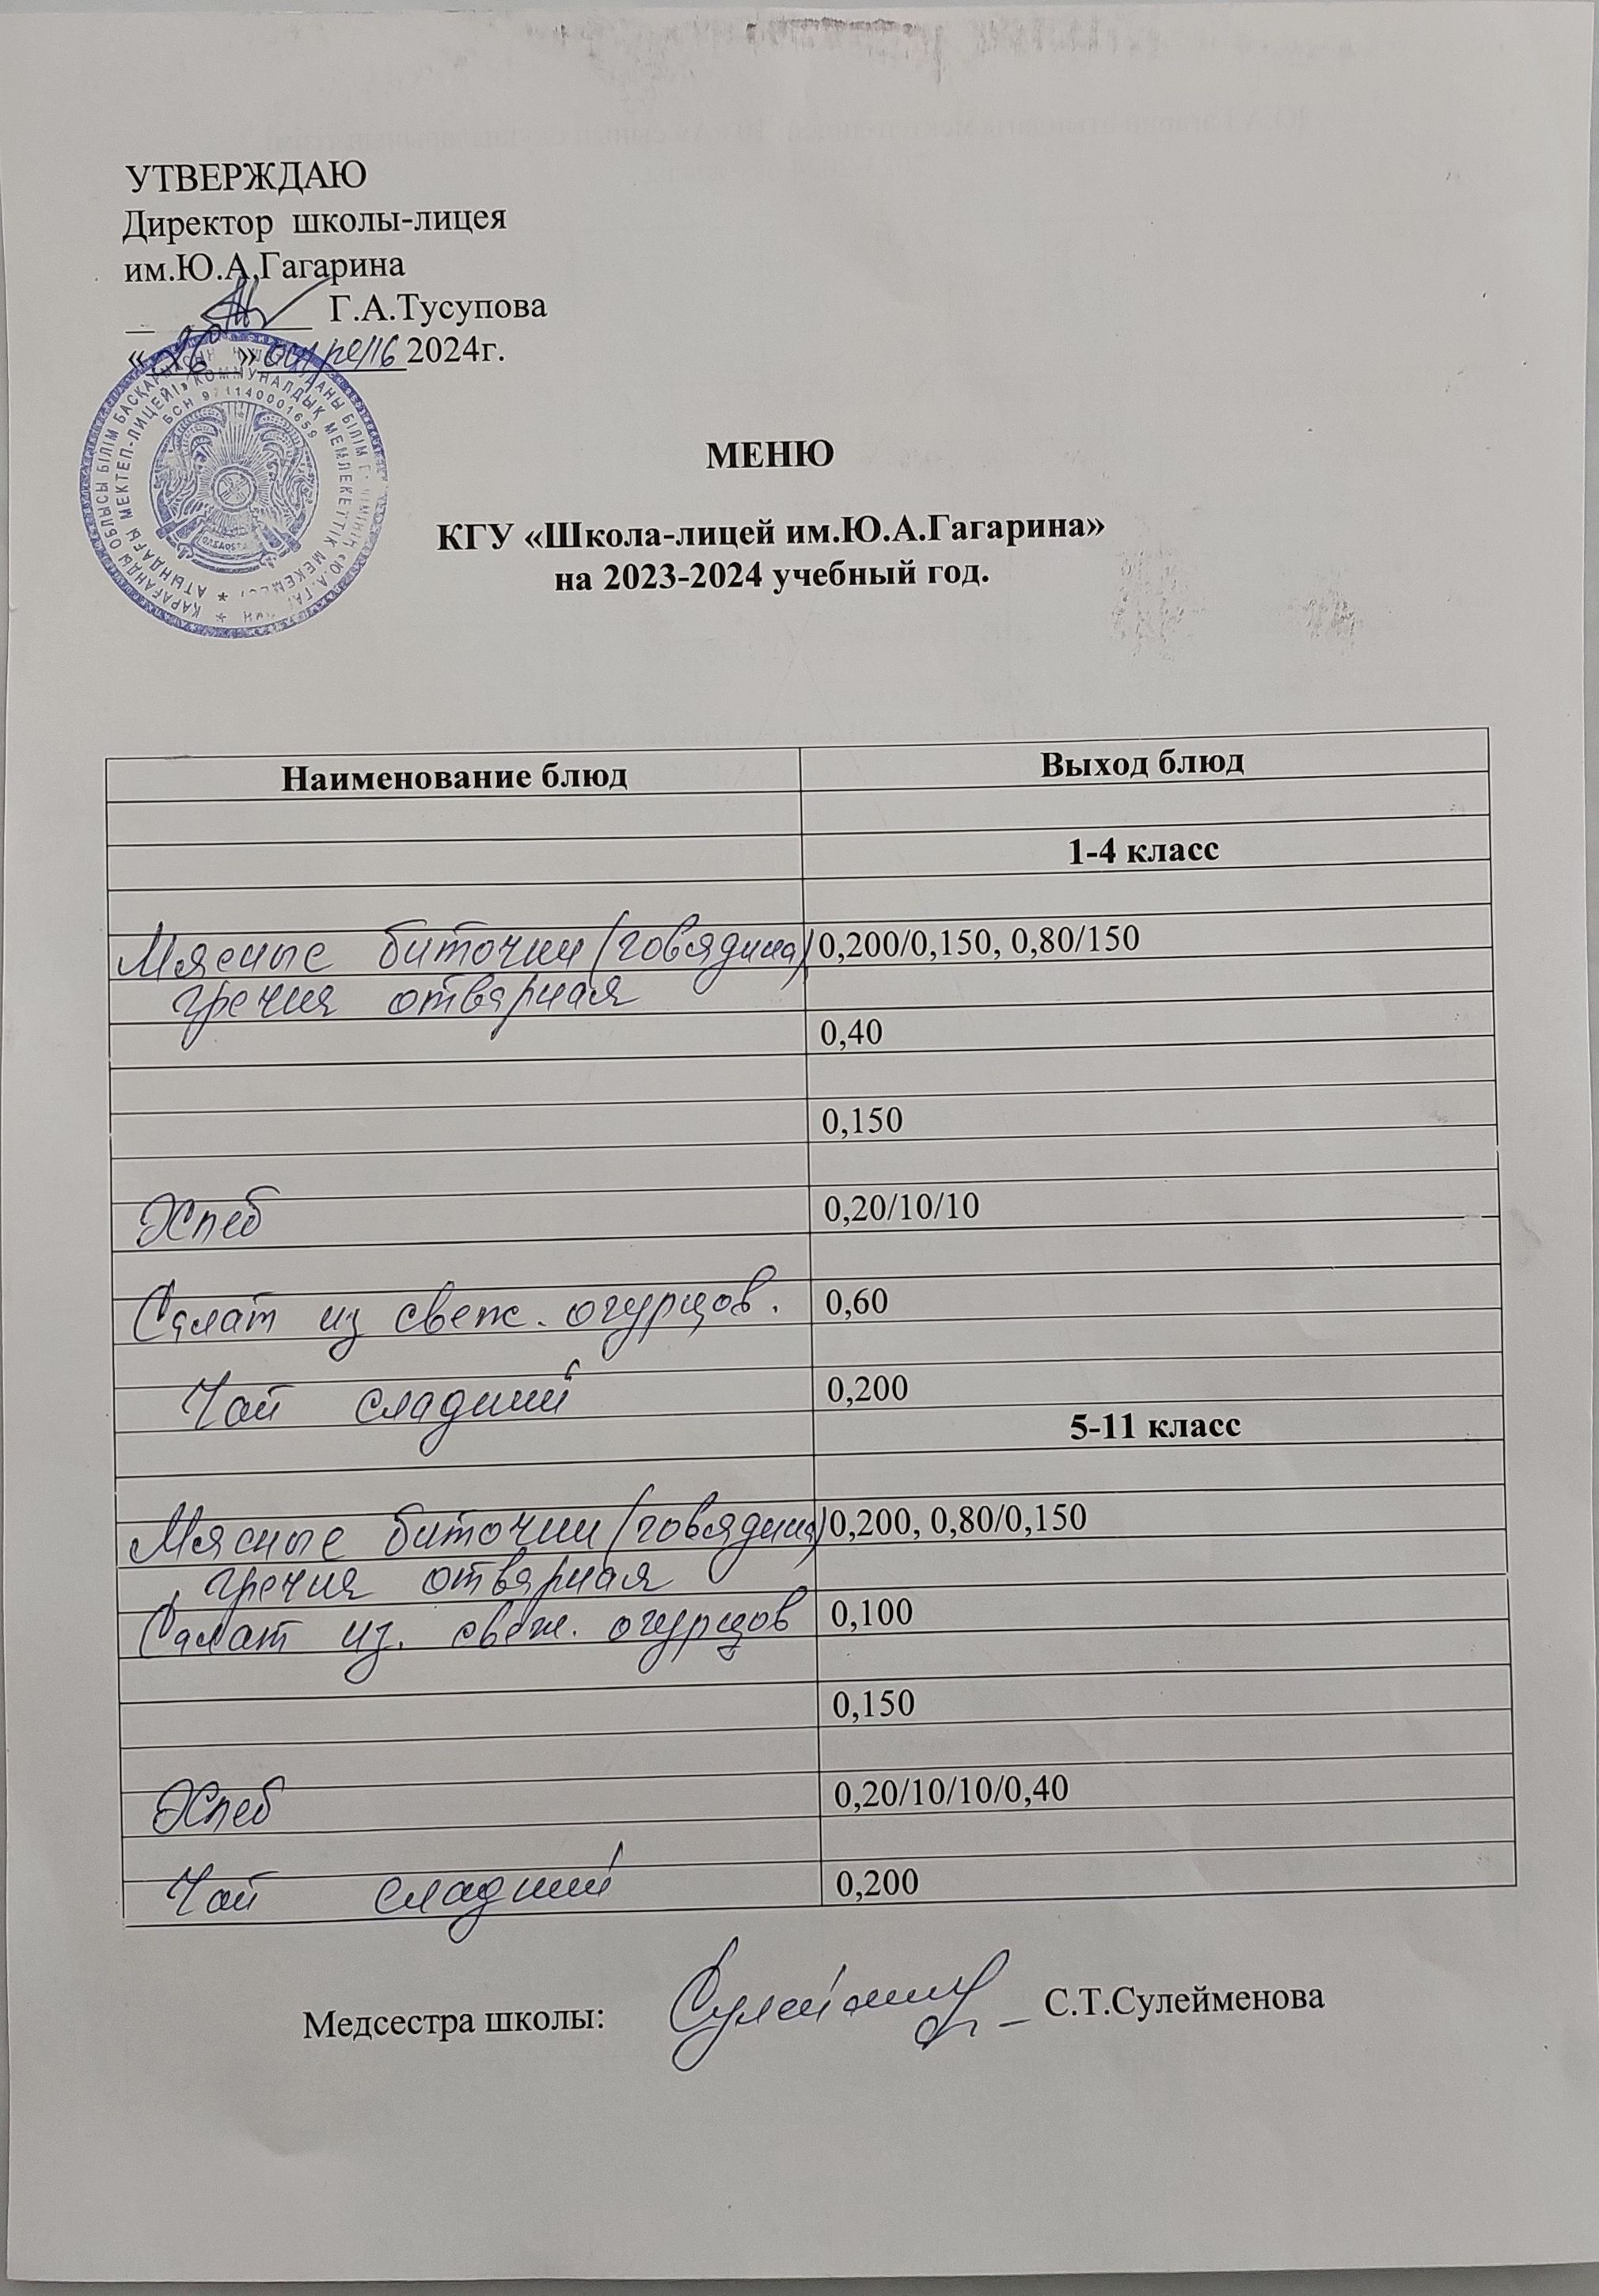 УТВЕРЖДАЮ
Директор школы-лицея
им.Ю.А.Гагарина
Г.А.Тусупова
«26» апреля 2024г.
БСН 971140001659
МЕНЮ
КГУ «Школа-лицей им.Ю.А.Гагарина»
на 2023-2024 учебный год.
Наименование блюд Выход блюд
1-4 класс
Мясные биточки (говядина) 0,200/0,150, 0,80/150
гречка отварная
0,40
0,150
Хлеб 0,20/10/10
Салат из свеж. огурцов. 0,60
Чай сладкий 0,200
5-11 класс
Мясные биточки (говядина) 0,200, 0,80/0,150
гречка отварная
Салат из. свеж. огурцов 0,100
0,150
Хлеб 0,20/10/10/0,40
Чай сладкий 0,200
Медсестра школы: С.Т.Сулейменова